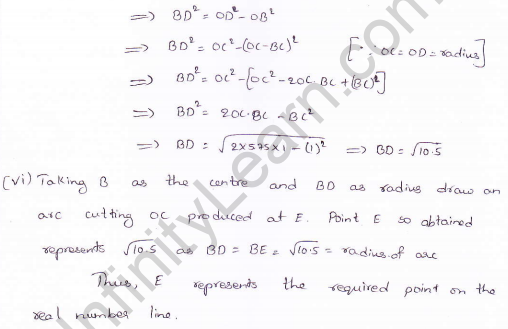 => BD² = OD² - OB²
=> BD² = OC² - (OC - BC)² [∵ OC = OD = radius]
=> BD² = OC² - [OC² - 2OC·BC + (BC)²]
=> BD² = 2OC·BC - BC²
=> BD = √2×575×1 - (1)² => BD = √10.5
(vi) Taking B as the centre and BD as radius draw an
arc cutting OC produced at E. Point E so obtained
represents √10.5 as BD = BE = √10.5 = radius of arc
Thus, E represents the required point on the
real number line.
InfinityLearn.com